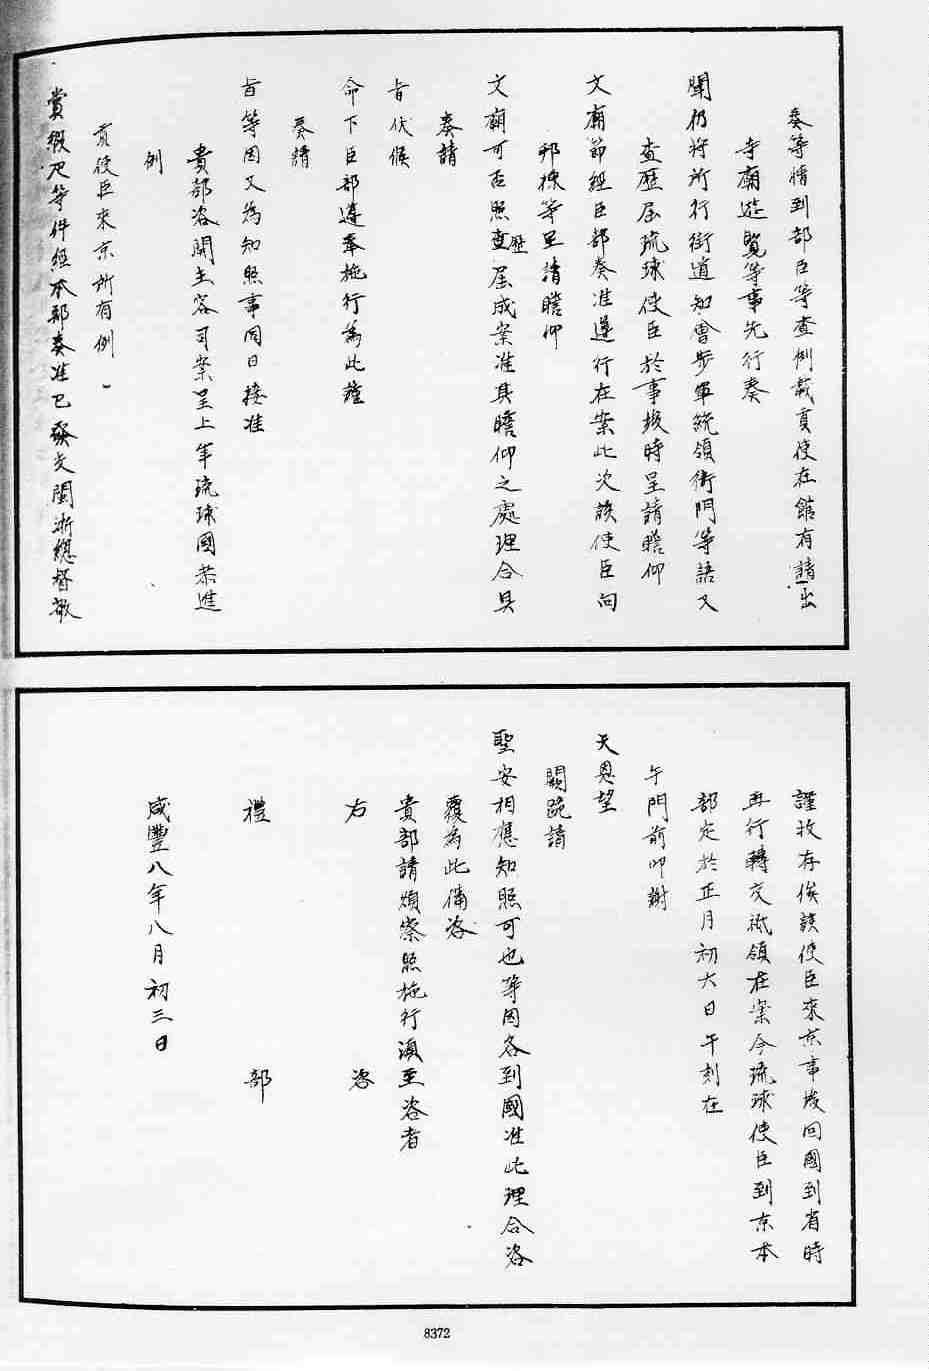 奏等情到部臣等查例載貢使在館有請出
寺廟遊覽等事先行奏
聞仍將所行街道知會步軍統領衙門等語又
查歷屆琉球使臣於事竣時呈請瞻仰
文廟節經臣部奏准遵行在案此次該使臣向
邦棟等呈請瞻仰
文廟可否照查歷屆成案准其瞻仰之處理合具
奏請
旨伏候
命下臣部遵奉施行為此謹
奏請
旨等因又為知照事同日接准
貴部咨開主客司案呈上年琉球國恭進
例
貢使臣來京所有例
賞緞疋等件經本部奏准已發交閩浙總督敬
謹收存俟該使臣來京事竣回國到省時
再行轉交祗領在案今琉球使臣到京本
部定於正月初六日午刻在
午門前叩謝
天恩望
闕跪請
聖安相應知照可也等因各到國准此理合咨
覆為此備咨
貴部請煩察照施行須至咨者
右 咨
禮 部
咸豐八年八月初三日
8372